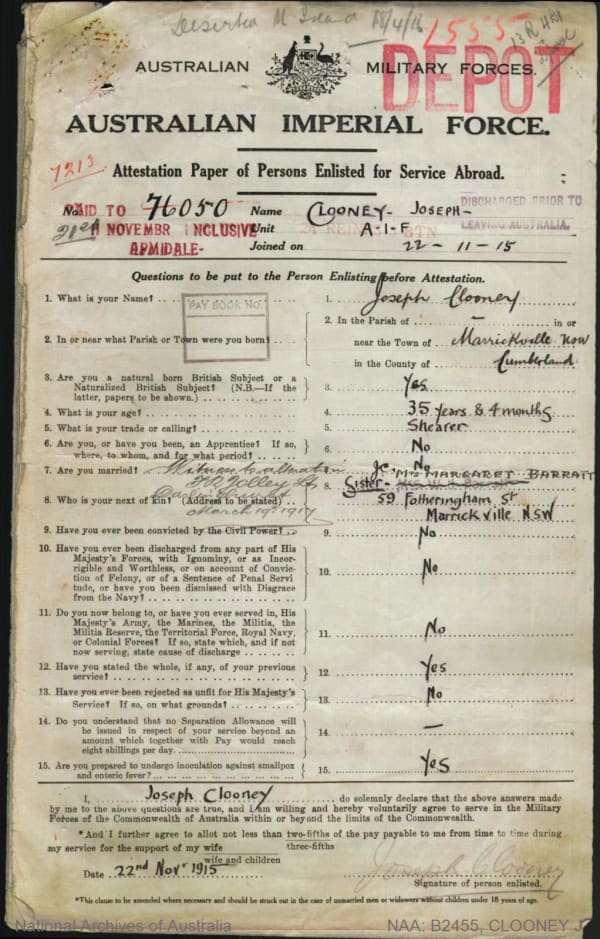 Deserted M Island 18/4/16
1555
13 R
DEPOT
AUSTRALIAN MILITARY FORCES.
AUSTRALIAN IMPERIAL FORCE.
7213
Attestation Paper of Persons Enlisted for Service Abroad.
No. 76050 Name CLOONEY - JOSEPH -
PAID TO
DISCHARGED PRIOR TO
LEAVING AUSTRALIA.
21st NOVEMBR INCLUSIVE Unit A-I-F
ARMIDALE- Joined on 22-11-15
Questions to be put to the Person Enlisting before Attestation.
1. What is your Name? 1. Joseph Clooney
PAY BOOK No.
2. In or near what Parish or Town were you born? 2. In the Parish of — in or
near the Town of Marrickville NSW
in the County of Cumberland
3. Are you a natural born British Subject or a
Naturalized British Subject? (N.B.—If the
latter, papers to be shown.) 3. Yes
4. What is your age? 4. 35 years & 4 months
5. What is your trade or calling? 5. Shearer
6. Are you, or have you been, an Apprentice? If so,
where, to whom, and for what period? 6. No
7. Are you married? 7. No
Witness to alteration
8. Who is your next of kin? (Address to be stated) 8. Sister - Mrs MARGARET BARRATT
59 Fotheringham St
Marrickville NSW
March 19th 1917
9. Have you ever been convicted by the Civil Power? 9. No
10. Have you ever been discharged from any part of His
Majesty's Forces, with Ignominy, or as Incor-
rigible and Worthless, or on account of Convic-
tion of Felony, or of a Sentence of Penal Servi
tude, or have you been dismissed with Disgrace
from the Navy? 10. No
11. Do you now belong to, or have you ever served in, His
Majesty's Army, the Marines, the Militia, the
Militia Reserve, the Territorial Force, Royal Navy,
or Colonial Forces? If so, state which, and if not
now serving, state cause of discharge 11. No
12. Have you stated the whole, if any, of your previous
service? 12. Yes
13. Have you ever been rejected as unfit for His Majesty's
Service? If so, on what grounds? 13. No
14. Do you understand that no Separation Allowance will
be issued in respect of your service beyond an
amount which together with Pay would reach
eight shillings per day. 14. —
15. Are you prepared to undergo inoculation against smallpox
and enteric fever? 15. Yes
I, Joseph Clooney do solemnly declare that the above answers made
by me to the above questions are true, and I am willing and hereby voluntarily agree to serve in the Military
Forces of the Commonwealth of Australia within or beyond the limits of the Commonwealth.
*And I further agree to allot not less than two-fifths of the pay payable to me from time to time during
three-fifths
my service for the support of my wife
wife and children
Date 22nd Nov. 1915 Joseph Clooney
Signature of person enlisted.
*This clause to be amended where necessary and should be struck out in the case of unmarried men or widowers without children under 18 years of age.
National Archives of Australia NAA: B2455, CLOONEY J